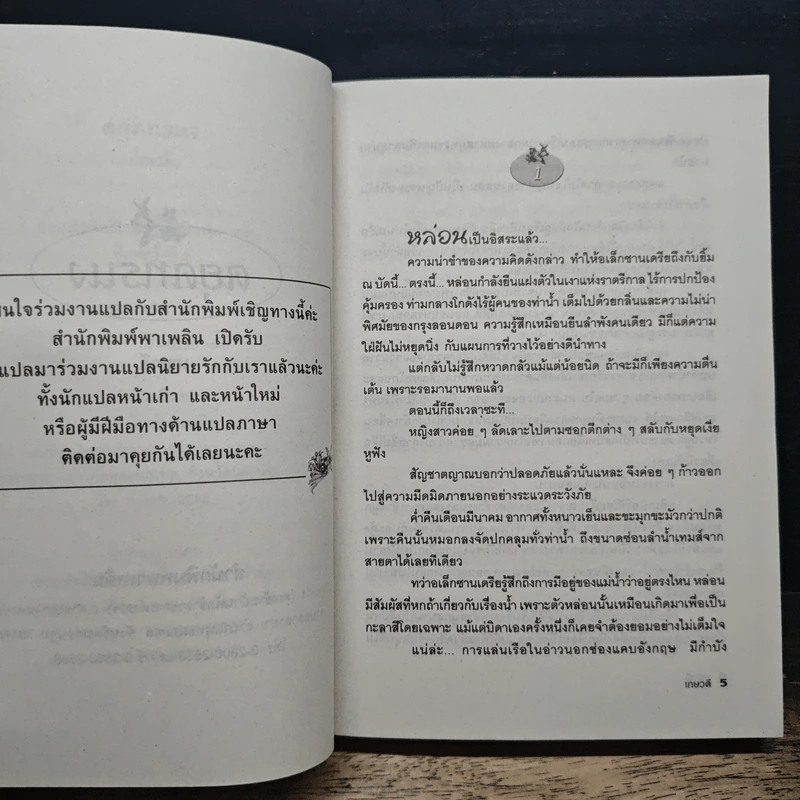 นใจร่วมงานแปลกับสำนักพิมพ์เชิญทางนี้ค่ะ
สำนักพิมพ์พาเพลิน เปิดรับ
แปลมาร่วมงานแปลนิยายรักกับเราแล้วนะค่ะ
ทั้งนักแปลหน้าเก่า และหน้าใหม่
หรือผู้มีฝีมือทางด้านแปลภาษา
ติดต่อมาคุยกันได้เลยนะคะ
1
หล่อนเป็นอิสระแล้ว...
ความน่าขำของความคิดดังกล่าว ทำให้อเล็กซานเดรียถึงกับยิ้ม
ณ บัดนี้... ตรงนี้... หล่อนกำลังยืนแฝงตัวในเงาแห่งราตรีกาล ไร้การปกป้อง
คุ้มครอง ท่ามกลางโกดังไร้ผู้คนของท่าน้ำ เต็มไปด้วยกลิ่นและความไม่น่า
พิศมัยของกรุงลอนดอน ความรู้สึกเหมือนยืนลำพังคนเดียว มีก็แต่ความ
ใฝ่ฝันไม่หยุดนิ่ง กับแผนการที่วางไว้อย่างดีนำทาง
แต่กลับไม่รู้สึกหวาดกลัวแม้แต่น้อยนิด ถ้าจะมีก็เพียงความตื่น
เต้น เพราะรอมานานพอแล้ว
ตอนนี้ก็ถึงเวลาซะที...
หญิงสาวค่อย ๆ ลัดเลาะไปตามซอกตึกต่าง ๆ สลับกับหยุดเงี่ย
หูฟัง
สัญชาตญาณบอกว่าปลอดภัยแล้วนั่นแหละ จึงค่อย ๆ ก้าวออก
ไปสู่ความมืดมิดภายนอกอย่างระแวดระวังภัย
ค่ำคืนเดือนมีนาคม อากาศทั้งหนาวเย็นและขะมุกขะมัวกว่าปกติ
เพราะคืนนั้นหมอกลงจัดปกคลุมทั่วท่าน้ำ ถึงขนาดซ่อนลำน้ำเทมส์จาก
สายตาได้เลยทีเดียว
ทว่าอเล็กซานเดรียรู้สึกถึงการมีอยู่ของแม่น้ำว่าอยู่ตรงไหน หล่อน
มีสัมผัสที่หกถ้าเกี่ยวกับเรื่องน้ำ เพราะตัวหล่อนนั้นเหมือนเกิดมาเพื่อเป็น
กะลาสีโดยเฉพาะ แม้แต่บิดาเองครั้งหนึ่งก็เคยจำต้องยอมอย่างไม่เต็มใจ
แน่ล่ะ... การแล่นเรือในอ่าวนอกช่องแคบอังกฤษ มีกำบัง
เกษวดี 5